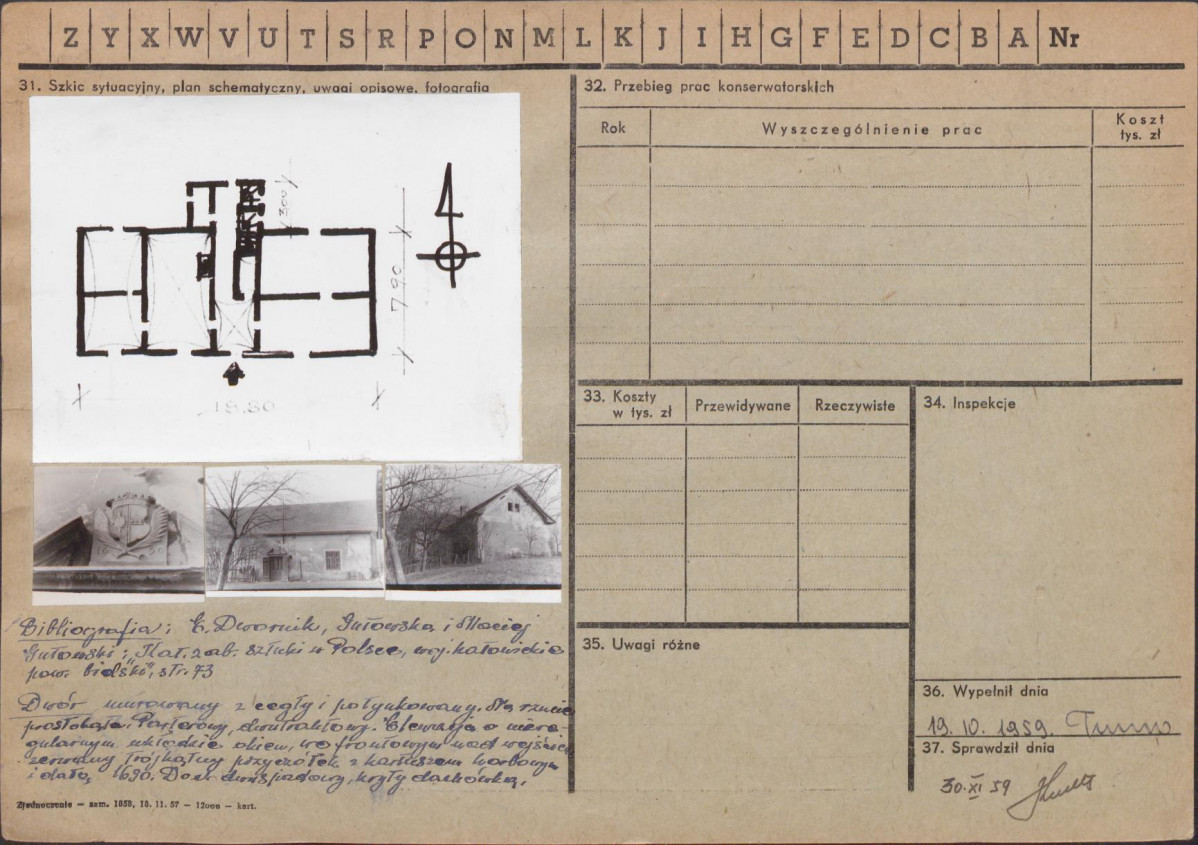 Z Y X W V U T S R P O N M L K J I H G F E D C B A Nr
31. Szkic sytuacyjny, plan schematyczny, uwagi opisowe, fotografia
300
790
18.80
1690
Bibliografia: E. Dwornik, Gutowska i Maciej
Gutowski: "Kat. zab. sztuki w Polsce, woj. katowickie
pow. bielski", str. 73
Dwór murowany z cegły i potynkowany. Na rzucie
prostokąta. Parterowy, dwutraktowy. Elewacje o niere-
gularnym układzie okien, we frontowym nad wejściem
zerwany trójkątny przyczółek z kartuszem herbowym
i datą 1690. Dach dwuspadowy, kryty dachówką.
Zjednoczenie — zam. 1858, 18. 11. 57 — 12000 — kart.
32. Przebieg prac konserwatorskich
Rok
Wyszczególnienie prac
Koszt
tys. zł
33. Koszty
w tys. zł
Przewidywane
Rzeczywiste
34. Inspekcje
35. Uwagi różne
36. Wypełnił dnia
19. 10. 1959.
37. Sprawdził dnia
30.XI 59